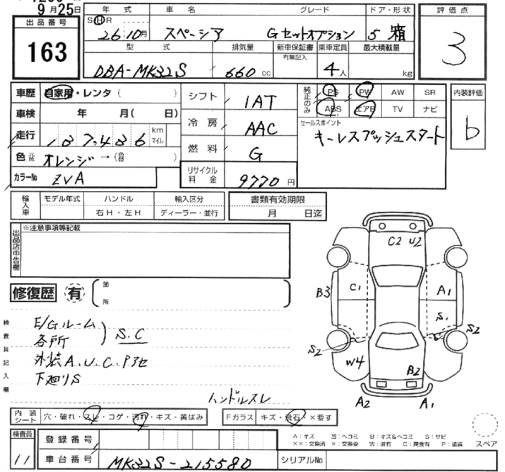 9月25日
出品番号
163
年式 車名 グレード ドア・形状
26.10月 スペーシア Gセットオプション 5 箱
型式 排気量 新車保証書 乗車定員 最大積載量
有無記入
DBA-MK32S 660cc 4人 kg
評価点
3
車歴 自家用・レンタ( )
車検 年 月( 日)
走行 187436 km マイル
色 オレンジ→
カラーNo ZVA
シフト IAT
冷房 AAC
燃料 G
リサイクル料金 9770円
純正のみ PS PW AW SR
ABS エアB TV ナビ
セールスポイント
キーレスプッシュスタート
内装評価
b
輸入車 モデル年式 ハンドル 輸入区分
右H・左H ディーラー・並行
書類有効期限
月 日迄
出品店申告欄
※注意事項等記載
修復歴 有
箇所
検査員記入欄
E/Gルーム
各所
S.C
外装A.U.C.P他
下廻りS
ハンドルスレ
C2 U2
B3 C1 A1
S1
S2 S2
W4 B2
A2 A1
内装シート 穴・破れ・スレ・コゲ・汚れ・キズ・黄ばみ
Fガラス キズ・飛石・×要す
スペア
A:キズ U:ヘコミ B:キズ&ヘコミ S:サビ
検査員
11
登録番号
車台番号 MK32S-215580
シリアルNo